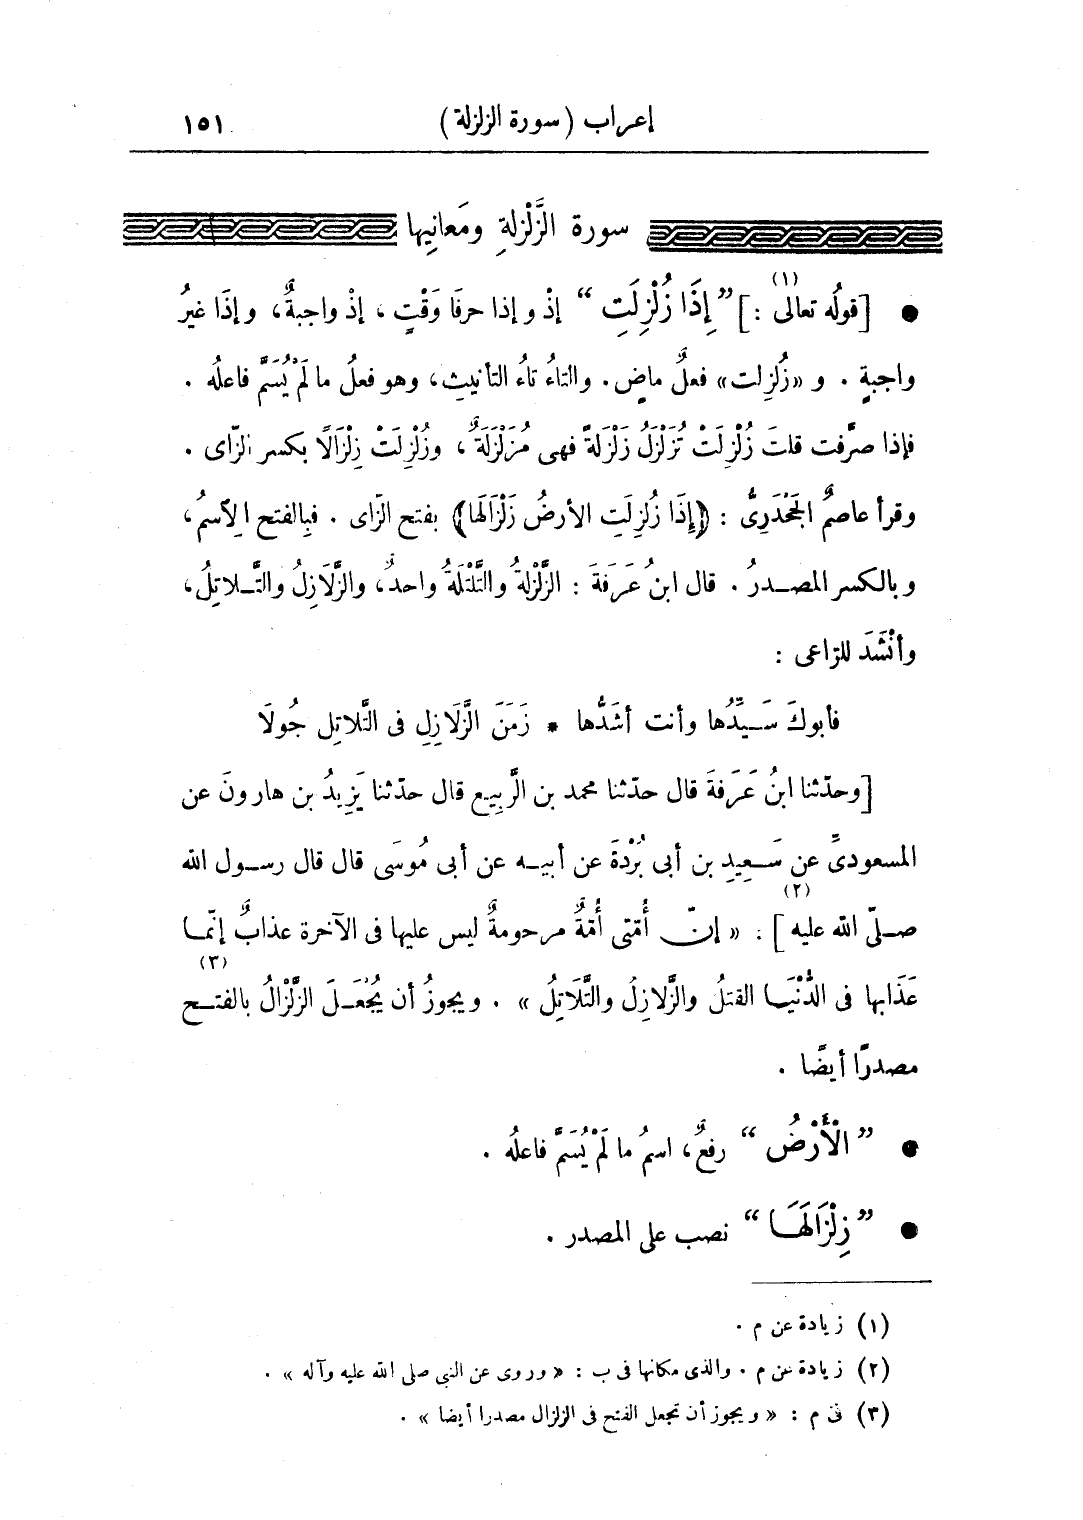 إعراب (سورة الزلزلة) ١٥١
سورة الزَّلْزلةِ ومَعانِيها
● [قولُه تعالى (١) :] ”إِذَا زُلْزِلَتِ“ إذْ وإذا حرفَا وَقْتٍ ، إذْ واجبةٌ، وإذَا غيرُ
واجبةٍ . و «زُلزِلت» فعلٌ ماضٍ. والتاءُ تاءُ التأنيثِ، وهو فعلُ ما لَمْ يُسَمَّ فاعلُه .
فإذا صرَّفت قلتَ زُلْزِلَتْ تُزَلْزَلُ زَلْزَلةً فهى مُزَلْزَلَةٌ ، وزُلْزِلَتْ زِلْزَالًا بكسر الزّاى .
وقرأ عاصمٌ الجَحْدَرِىُّ : ﴿إِذَا زُلزِلَتِ الأرضُ زَلْزَالَهَا﴾ بفتح الزّاى . فبِالفتح الِاسمُ،
وبالكسر المصدرُ . قال ابنُ عَرَفةَ : الزَّلْزلةُ والتَّلْتَلةُ واحدٌ، والزَّلَازِلُ والتَّلاتِلُ،
وأنْشَدَ للراعى :
فأبوكَ سَيِّدُها وأنت أشَدُّها * زَمَنَ الزَّلَازِلِ فى التَّلاتِل جُولَا
[وحدّثنا ابنُ عَرَفةَ قال حدّثنا محمد بن الرَّبِيع قال حدّثنا يَزِيدُ بن هارونَ عن
المسعودىِّ عن سَعِيدِ بن أبى بُرْدةَ عن أبيه عن أبى مُوسَى قال قال رسول الله
صلّى الله عليه (٢)] : «إنّ أُمّتى أُمّةٌ مرحومةٌ ليس عليها فى الآخرة عذابٌ إنّما
عَذَابها فى الدُّنْيَا القتلُ والزَّلازِلُ والتَّلَاتِلُ» . (٣) ويجوزُ أن يُجْعَلَ الزَّلْزالُ بالفتح
مصدرًا أيضًا .
● ”الْأَرْضُ“ رفعٌ، اسمُ ما لَمْ يُسَمَّ فاعلُه .
● ”زِلْزَالَهَا“ نصب على المصدر .
(١) زيادة عن م .
(٢) زيادة عن م . والذى مكانها فى ب : «وروى عن النبى صلى الله عليه وآله» .
(٣) فى م : «ويجوز أن تجعل الفتح فى الزلزال مصدرا أيضا» .